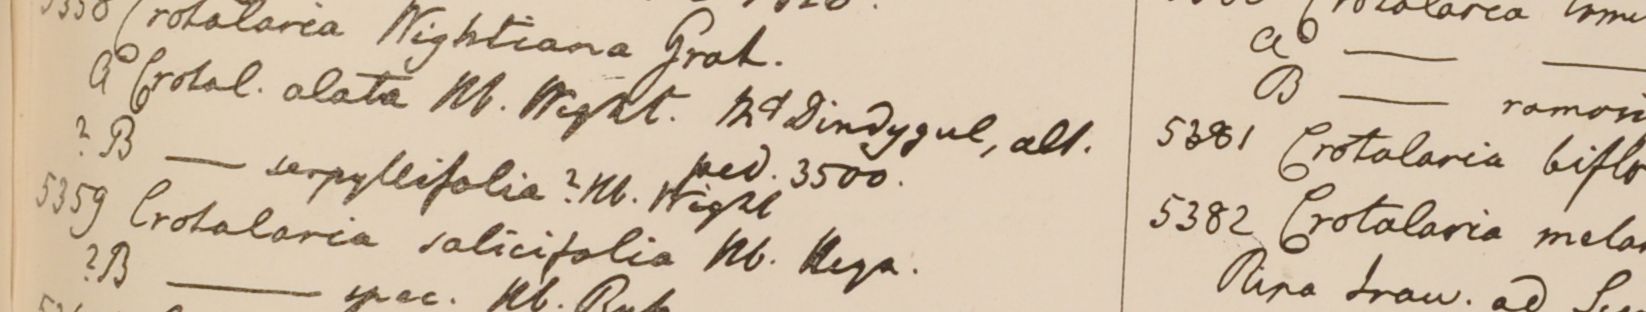 5358 Crotalaria Wightiana Grah.
a° Crotal. alata Hb. Wight. Md Dindygul, alt.
ped. 3500.
? B — serpyllifolia ? Hb. Wight
5359 Crotalaria salicifolia Hb. Heyn.
? B — spec. Hb.
Crotalaria
a° — —
B — ramosi
5381 Crotalaria biflo
5382 Crotalaria melan
Ripa Iraw. ad